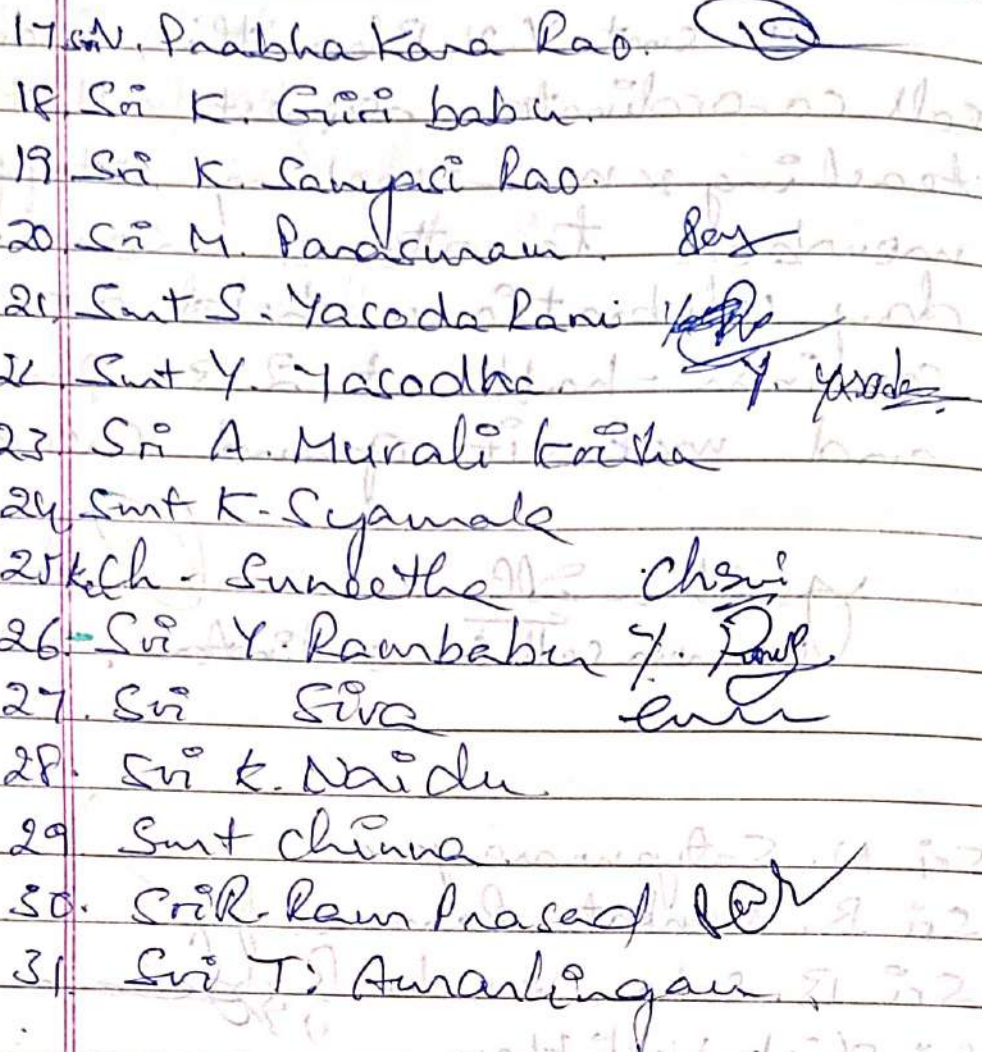 17 Sri N. Prabha Kara Rao.
18. Sri K. Giri babu.
19. Sri K. Sanyasi Rao.
20. Sri M. Parasuram.
21. Smt S. Yasoda Rani
22 Smt Y. Yasodha Y. Yasoda
23. Sri A. Murali Krishna
24. Smt K. Syamala
25 K. Ch. Suneetha
26. Sri Y. Rambabu Y.
27. Sri Siva
28. Sri K. Naidu
29 Smt Chinna
30. Sri R. Ram Prasad
31. Sri T. Amarlingam